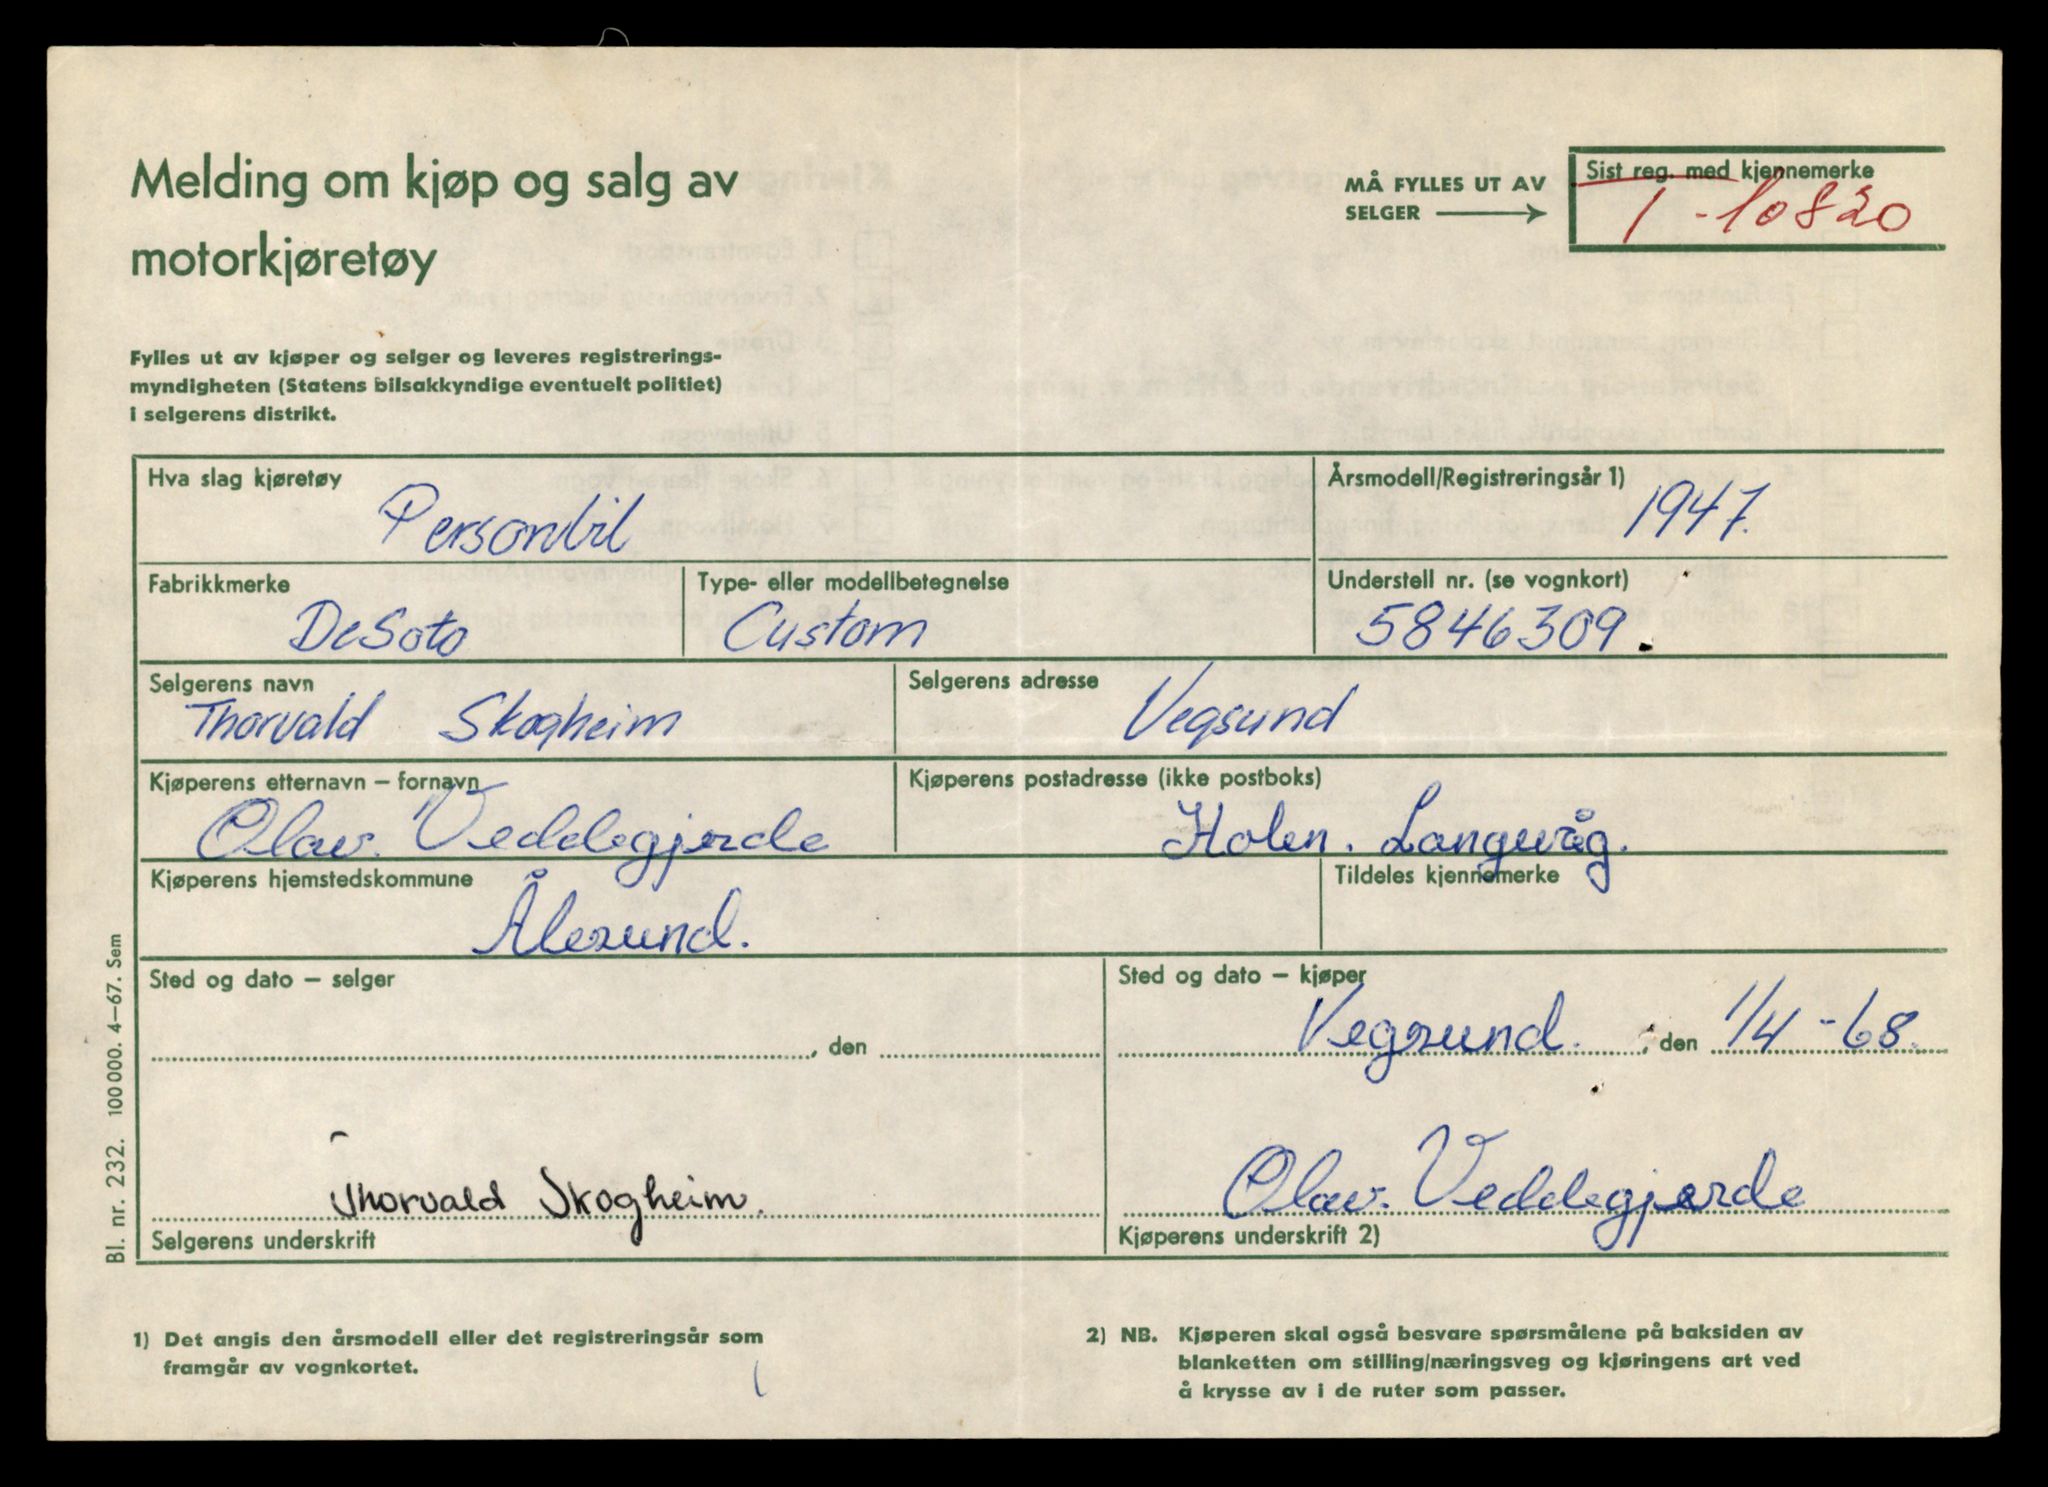 Melding om kjøp og salg av
motorkjøretøy
MÅ FYLLES UT AV
SELGER
Sist reg. med kjennemerke
T-10820
Fylles ut av kjøper og selger og leveres registrerings-
myndigheten (Statens bilsakkyndige eventuelt politiet)
i selgerens distrikt.
Hva slag kjøretøy
Personbil
Årsmodell/Registreringsår 1)
1947.
Fabrikkmerke
DeSoto
Type- eller modellbetegnelse
Custom
Understell nr. (se vognkort)
5846309.
Selgerens navn
Thorvald Skogheim
Selgerens adresse
Vegsund
Kjøperens etternavn – fornavn
Olav. Veddegjerde
Kjøperens postadresse (ikke postboks)
Holen. Langevåg.
Kjøperens hjemstedskommune
Ålesund.
Tildeles kjennemerke
Sted og dato – selger
, den
Sted og dato – kjøper
Vegsund. , den 1/4-68.
Thorvald Skogheim.
Selgerens underskrift
Olav. Veddegjerde
Kjøperens underskrift 2)
Bl. nr. 232. 100 000. 4–67. Sem
1) Det angis den årsmodell eller det registreringsår som
framgår av vognkortet.
2) NB. Kjøperen skal også besvare spørsmålene på baksiden av
blanketten om stilling/næringsveg og kjøringens art ved
å krysse av i de ruter som passer.